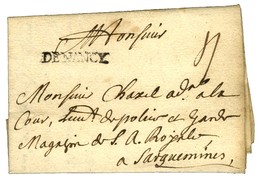 Monsieur
DE NANCY
Monsieur Chazel ad.t a la
Cour, Lieut. de police et Garde
Magazin de S. A. Royale
a Sarguemines,